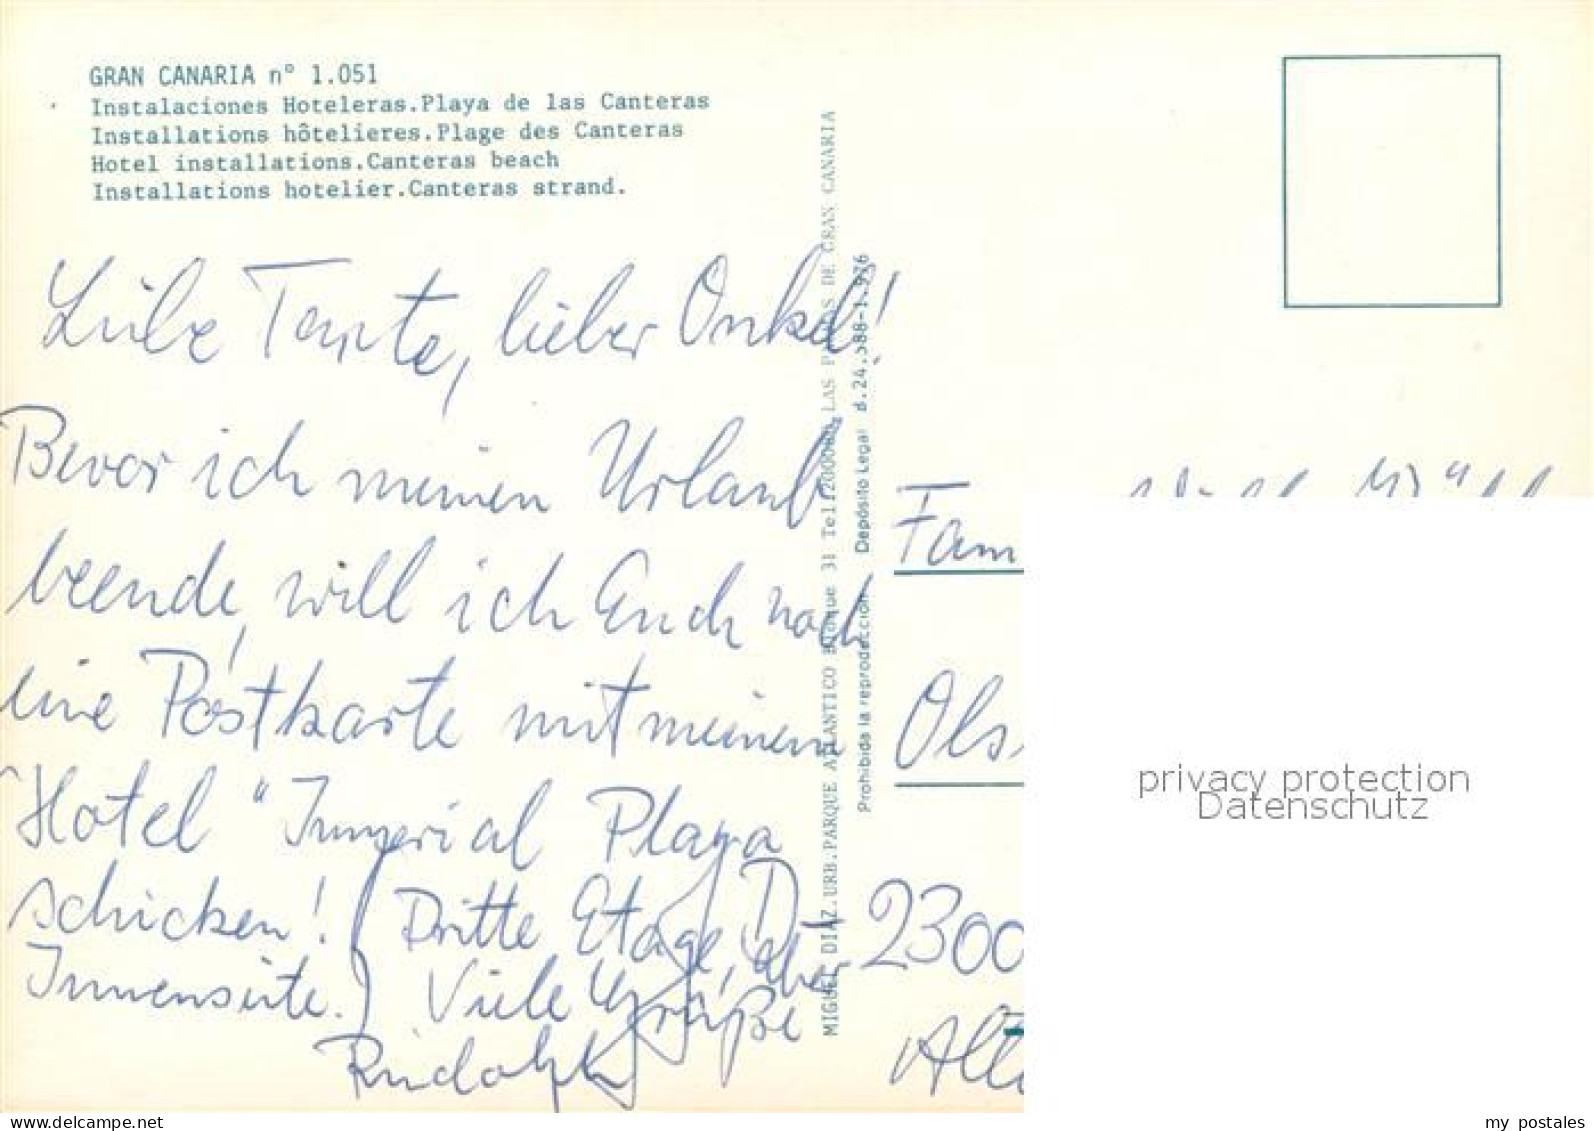 GRAN CANARIA nº 1.051
Instalaciones Hoteleras.Playa de las Canteras
Installations hôtelieres.Plage des Canteras
Hotel installations.Canteras beach
Installations hotelier.Canteras strand.
Liebe Tante, lieber Onkel!
Bevor ich meinen Urlaub
beende, will ich Euch noch
eine Postkarte mit meinem
Hotel "Imperial Playa
schicken! (Dritte Etage, aber
Innenseite.) Viele Grüße
Rudolph
MIGUEL DIAZ.URB.PARQUE ATLANTICO Bloque 31 LAS PALMAS DE GRAN CANARIA
Prohibida la reproducción Depósito Legal
Fam
Ols
D-2300
privacy protection
Datenschutz
www.delcampe.net
my_postales